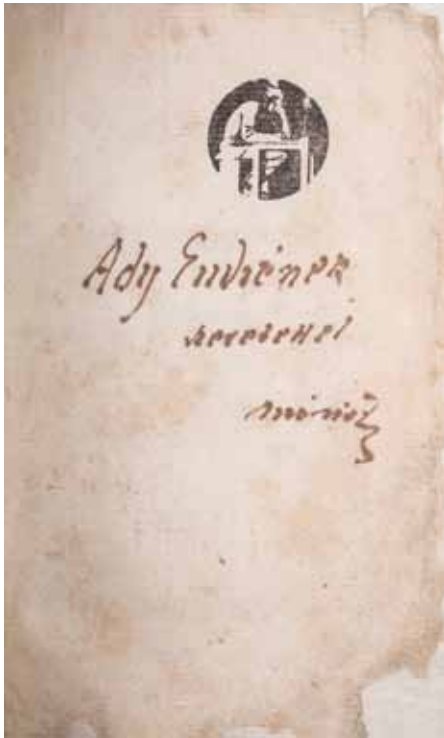 Ady Endrének
szeretettel
Móricz